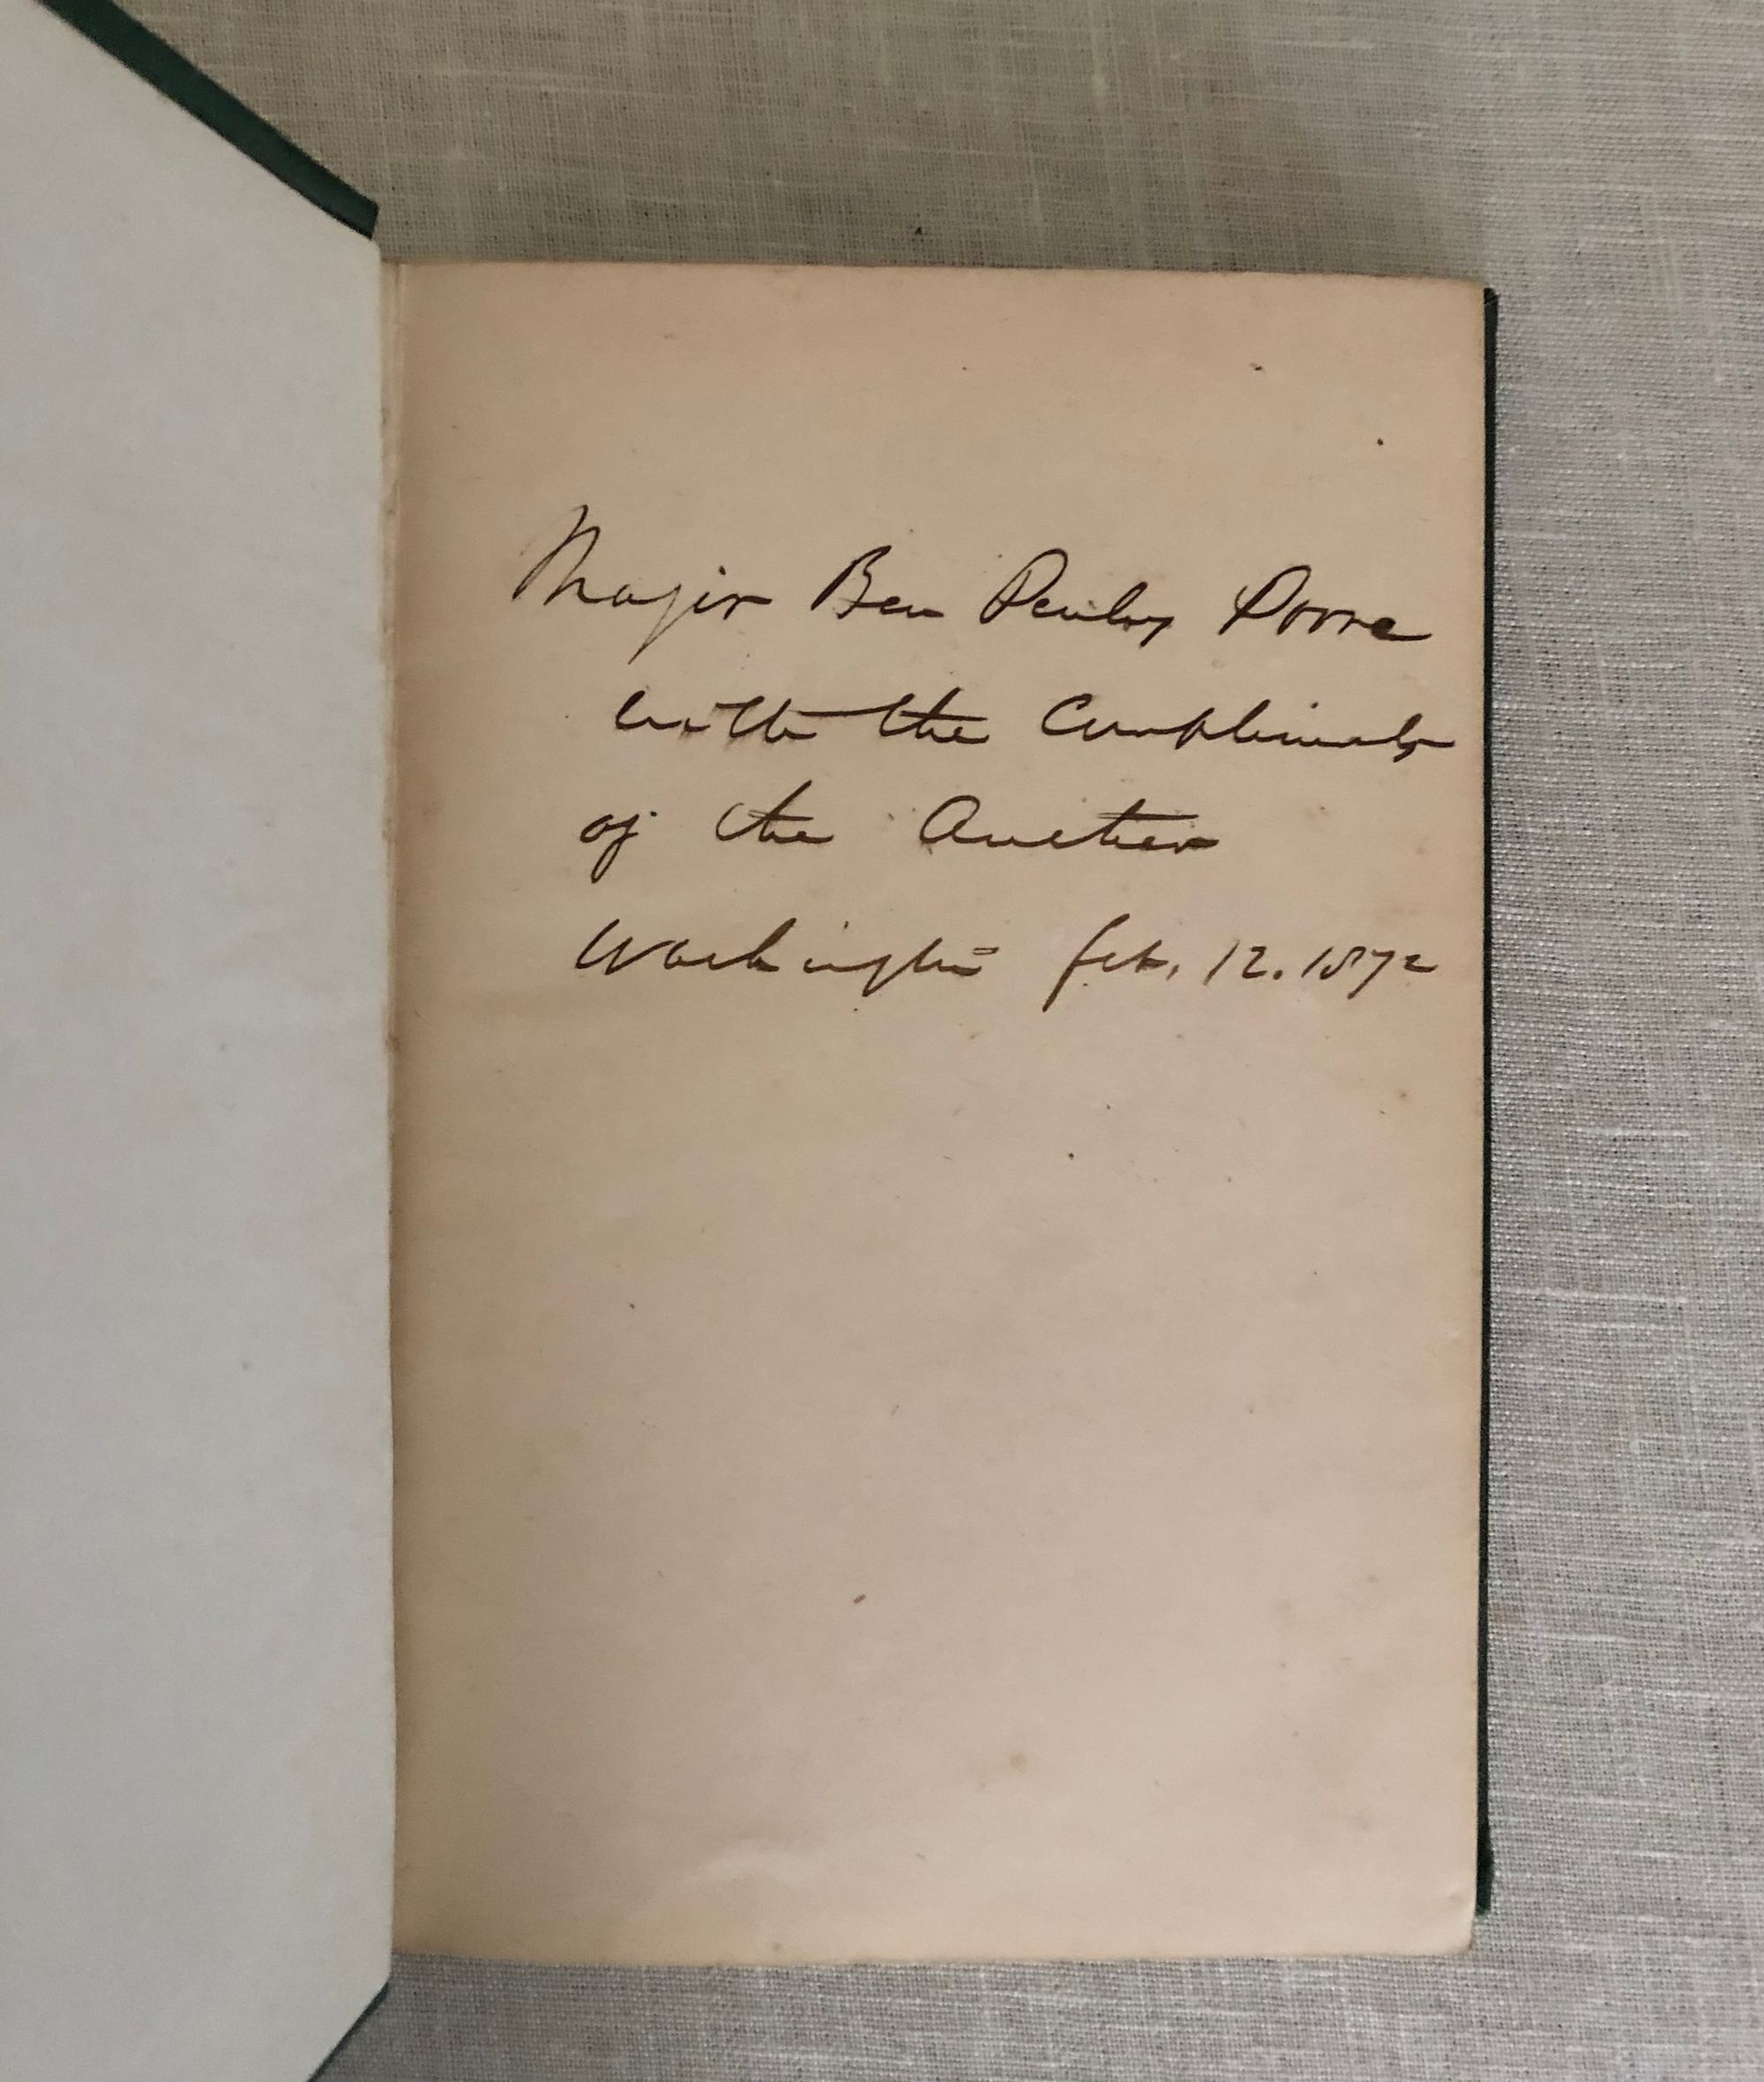 Major Ben Perley Poore
with the Compliments
of the Author
Washington Feb. 12. 1872